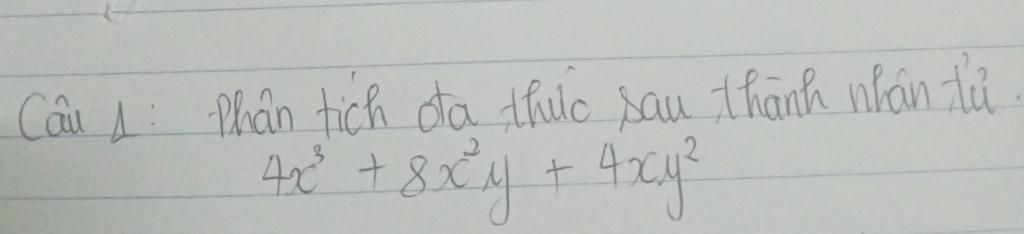 Câu 1: Phân tích đa thức sau thành nhân tử.
4x³ + 8x²y + 4xy²